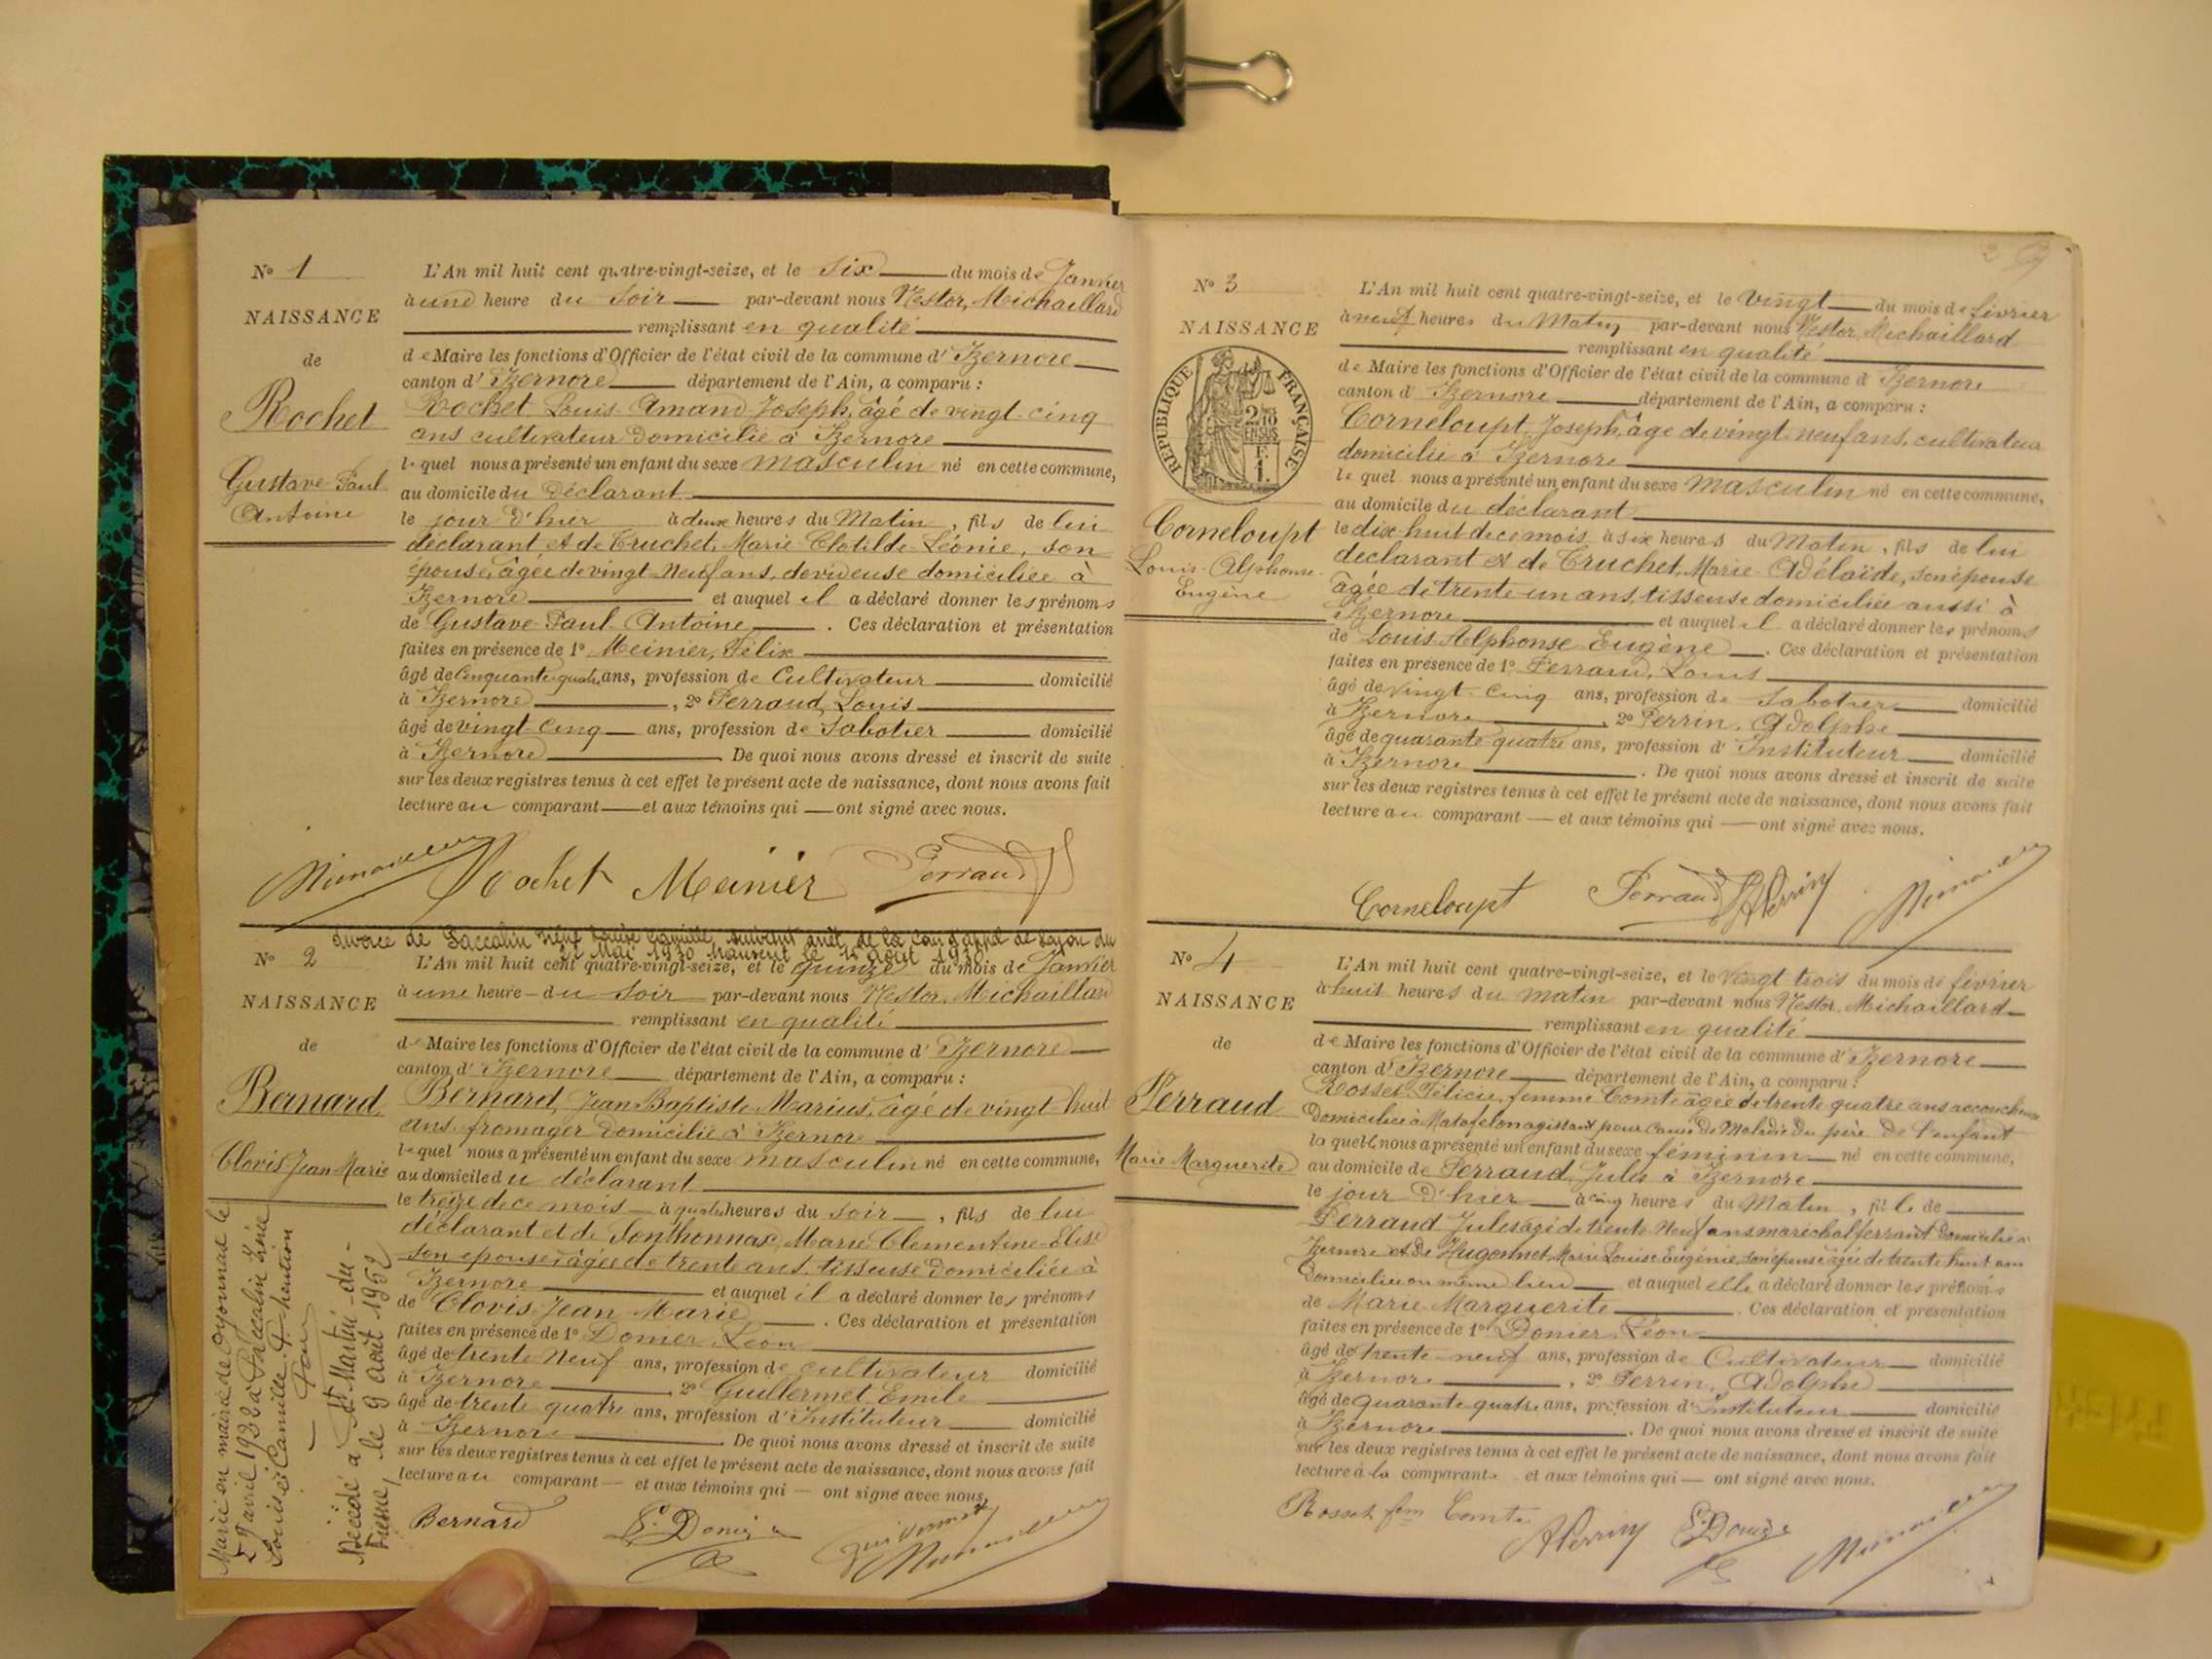 Nº 1
NAISSANCE
de
Rochet
Gustave Paul
Antoine
L'An mil huit cent quatre-vingt-seize, et le Six du mois de Janvier
à une heure du Soir par-devant nous Nestor, Michaillard
remplissant en qualité
de Maire les fonctions d'Officier de l'état civil de la commune d' Izernore
canton d' Izernore département de l'Ain, a comparu :
Rochet Louis Amand Joseph, âgé de vingt cinq
ans cultivateur domicilié à Izernore
lequel nous a présenté un enfant du sexe masculin né en cette commune,
au domicile du déclarant
le jour d'hier à deux heures du Matin, fils de lui
déclarant et de Truchet, Marie Clotilde Léonie, son
épouse, âgée de vingt Neuf ans, dévideuse domiciliée à
Izernore et auquel il a déclaré donner les prénoms
de Gustave Paul Antoine. Ces déclaration et présentation
faites en présence de 1º Meinier, Félix
âgé de Cinquante quatre ans, profession de Cultivateur domicilié
à Izernore, 2º Perraud, Louis
âgé de vingt Cinq ans, profession de Sabotier domicilié
à Izernore De quoi nous avons dressé et inscrit de suite
sur les deux registres tenus à cet effet le présent acte de naissance, dont nous avons fait
lecture au comparant et aux témoins qui ont signé avec nous.
Rochet Meinier Perraud
divorcé de Saccalin Irène Louise Camille, suivant arrêt de la cour d'appel de Lyon du
Mai 1950 août 1950
Nº 2
NAISSANCE
de
Bernard
Clovis Jean Marie
Marié en mairie de Oyonnax le
avril 1932 à Saccalin Irène
Louise Camille. Mention
Décédé à St Martin-du-
Fresne, le 9 août 1952
L'An mil huit cent quatre-vingt-seize, et le quinze du mois de Janvier
à une heure du Soir par-devant nous Nestor, Michaillard
remplissant en qualité
de Maire les fonctions d'Officier de l'état civil de la commune d' Izernore
canton d' Izernore département de l'Ain, a comparu :
Bernard, Jean Baptiste Marius, âgé de vingt huit
ans fromager domicilié à Izernore
lequel nous a présenté un enfant du sexe masculin né en cette commune,
au domicile du déclarant
le treize de ce mois à quatre heures du soir, fils de lui
déclarant et de Sonthonnax, Marie Clémentine Elise
son épouse, âgée de trente ans, tisseuse domiciliée à
Izernore et auquel il a déclaré donner les prénoms
de Clovis Jean Marie. Ces déclaration et présentation
faites en présence de 1º Donier, Léon
âgé de trente Neuf ans, profession de cultivateur domicilié
à Izernore, 2º Guillermet Emile
âgé de trente quatre ans, profession d'Instituteur domicilié
à Izernore De quoi nous avons dressé et inscrit de suite
sur les deux registres tenus à cet effet le présent acte de naissance, dont nous avons fait
lecture au comparant et aux témoins qui ont signé avec nous.
Bernard
Nº 3
NAISSANCE
RÉPUBLIQUE FRANÇAISE
Corneloupt
Louis Alphonse
Eugène
L'An mil huit cent quatre-vingt-seize, et le Vingt du mois de février
à neuf heures du Matin par-devant nous Nestor Michaillard
remplissant en qualité
de Maire les fonctions d'Officier de l'état civil de la commune d' Izernore
canton d' Izernore département de l'Ain, a comparu :
Corneloupt, Joseph, âgé de vingt neuf ans, cultivateur
domicilié à Izernore
lequel nous a présenté un enfant du sexe masculin né en cette commune,
au domicile du déclarant
le dix huit de ce mois, à six heures du Matin, fils de lui
déclarant et de Truchet, Marie Adélaïde, son épouse
âgée de trente un ans, tisseuse domiciliée aussi à
Izernore et auquel il a déclaré donner les prénoms
de Louis Alphonse Eugène. Ces déclaration et présentation
faites en présence de 1º Perraud, Louis
âgé de vingt cinq ans, profession de Sabotier domicilié
à Izernore, 2º Perrin, Adolphe
âgé de quarante quatre ans, profession d' Instituteur domicilié
à Izernore. De quoi nous avons dressé et inscrit de suite
sur les deux registres tenus à cet effet le présent acte de naissance, dont nous avons fait
lecture au comparant et aux témoins qui ont signé avec nous.
Corneloupt Perraud APerrin
Nº 4
NAISSANCE
de
Perraud
Marie Marguerite
L'An mil huit cent quatre-vingt-seize, et le Vingt trois du mois de février
à huit heures du matin par-devant nous Nestor, Michaillard
remplissant en qualité
de Maire les fonctions d'Officier de l'état civil de la commune d' Izernore
canton d' Izernore département de l'Ain, a comparu :
Rosset, Félicie, femme Comte âgée de trente quatre ans accoucheuse
domiciliée à Matafelon agissant pour cause de Maladie du père de l'enfant
laquelle nous a présenté un enfant du sexe féminin né en cette commune,
au domicile de Perraud Jules à Izernore
le jour d'hier à cinq heures du Matin, fille de
Perraud Jules âgé de trente Neuf ans maréchal ferrant domicilié à
Izernore et de Hugonnet Marie Louise Eugénie, son épouse âgée de trente huit ans
domiciliée au même lieu et auquel elle a déclaré donner les prénoms
de Marie Marguerite. Ces déclaration et présentation
faites en présence de 1º Donier, Léon
âgé de trente neuf ans, profession de Cultivateur domicilié
à Izernore, 2º Perrin, Adolphe
âgé de quarante quatre ans, profession d'Instituteur domicilié
à Izernore. De quoi nous avons dressé et inscrit de suite
sur les deux registres tenus à cet effet le présent acte de naissance, dont nous avons fait
lecture à la comparante et aux témoins qui ont signé avec nous.
Rosset fem Comte
APerrin